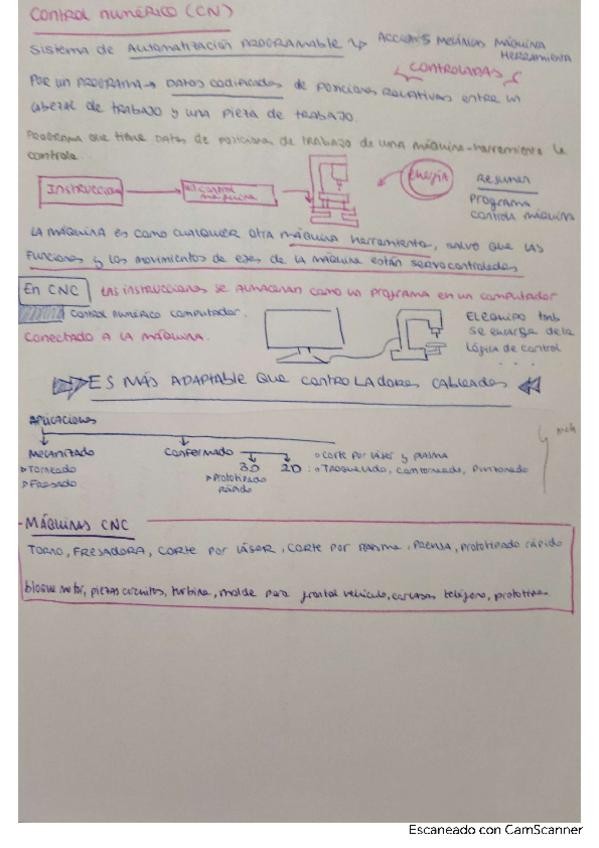 CONTROL NUMÉRICO (CN)
Sistema de AUTOMATIZACIÓN PROGRAMABLE → ACCIONES MECÁNICAS MÁQUINA HERRAMIENTA
CONTROLADAS
POR UN PROGRAMA → DATOS codificados de posiciones RELATIVAS entre un
cabezal de trabajo y una pieza de trabajo.
PROGRAMA que tiene datos de posiciones de trabajo de una máquina-herramienta la
controla.
INSTRUCCION
El control máquina
Energía
RESUMEN
PROGRAMA
controla máquina
LA MÁQUINA es como cualquier otra máquina herramienta, salvo que las
Funciones y los movimientos de ejes de la máquina están servocontrolados
En CNC
LAS instrucciones se almacenan como un programa en un computador
control numérico computador.
conectado a la máquina.
El equipo tmb
se encarga de la
lógica de control
. . .
ES MÁS ADAPTABLE QUE CONTROLADORES CABLEADOS
Aplicaciones
Mecanizado
Conformado
▹Torneado
▹Fresado
3D
2D:
▹Prototipado
rápido
◦ Corte por láser y plasma
◦ Troquelado, conformado, punzonado
MÁQUINAS CNC
TORNO, FRESADORA, CORTE por LÁSER, CORTE por PLASMA, PRENSA, prototipado rápido
bloque motor, piezas circuitos, turbina, molde para frontal vehículo, carcasas teléfono, prototipos
Escaneado con CamScanner